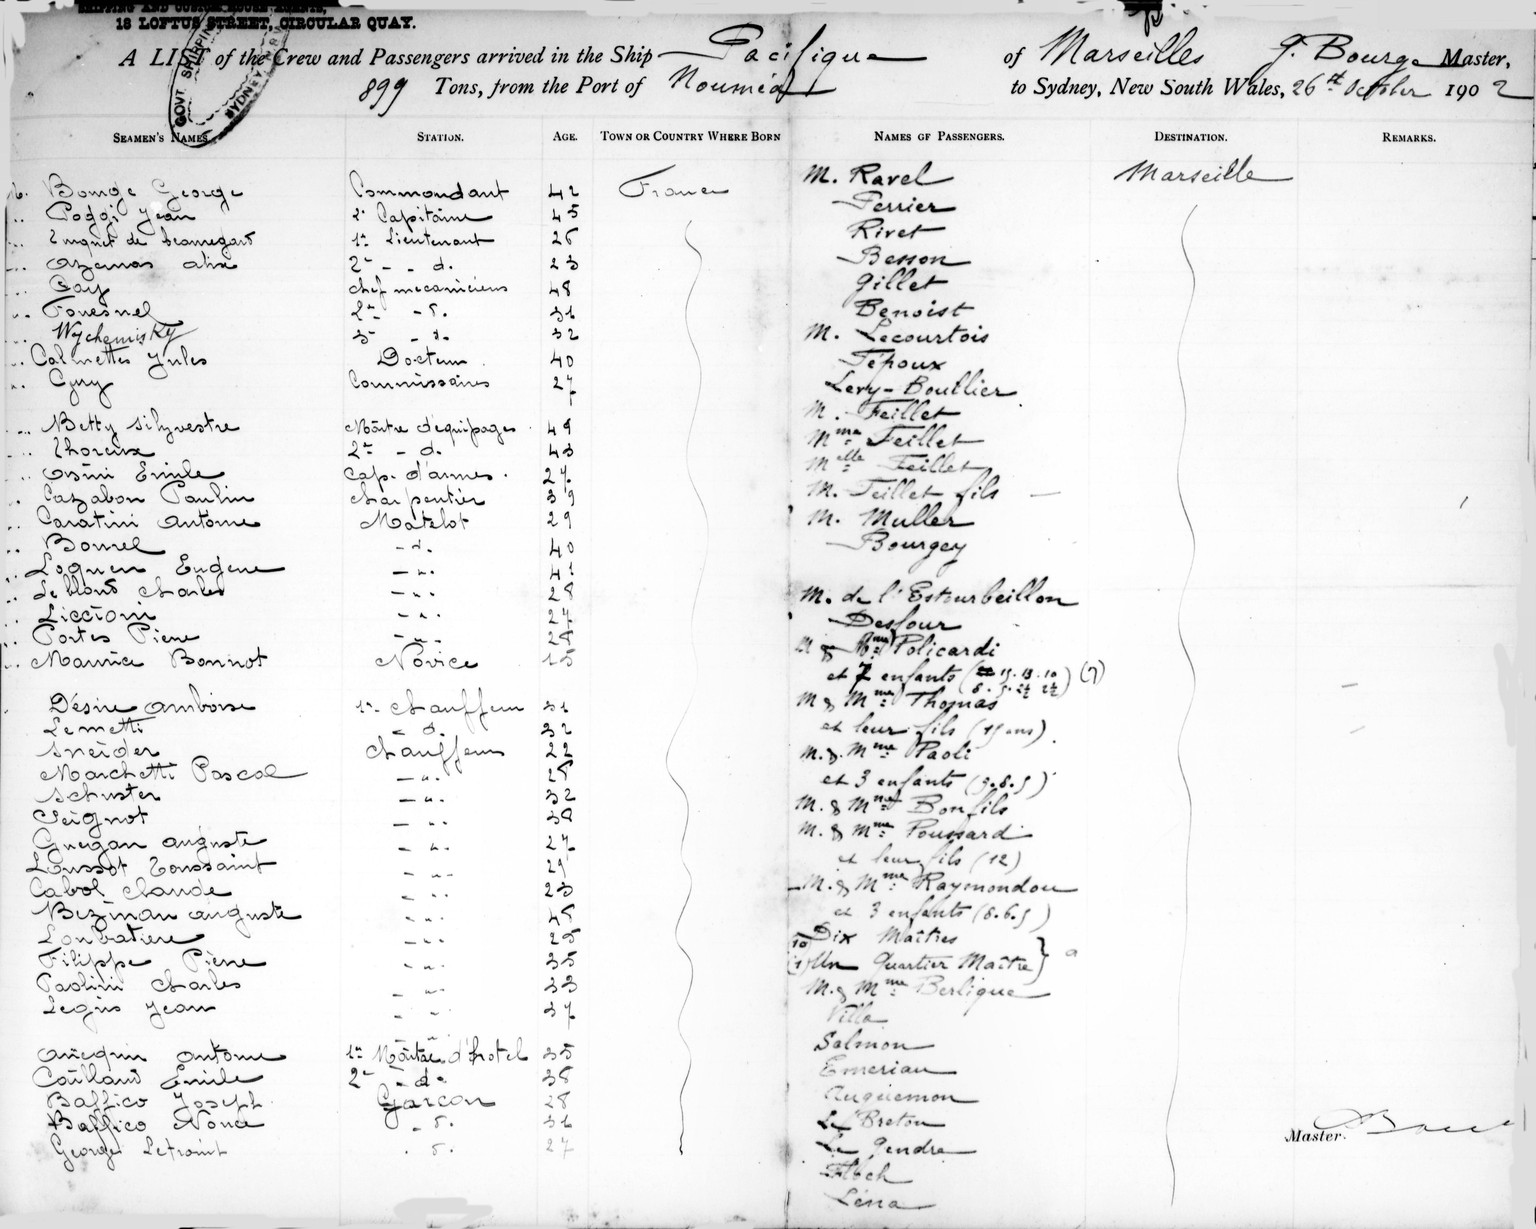 SHIPPING AND CUSTOM HOUSE AGENTS,
18 LOFTUS STREET, CIRCULAR QUAY.
GOVT SHIPPING
SYDNEY
A LIST of the Crew and Passengers arrived in the Ship Pacifique of Marseilles G. Bourge Master,
899 Tons, from the Port of Nouméa to Sydney, New South Wales, 26st October 1902
SEAMEN'S NAMES. STATION. AGE. TOWN OR COUNTRY WHERE BORN
Bourge George Commandant 42 France
Poggi Jean 2e Capitaine 45
de Beauregard 1er Lieutenant 26
Azemas Alix 2e - - d. 23
Gay Chef mecaniciens 48
Fouesnel 2e - d. 31
Wychemisky 3e - d. 32
Calmettes Jules Docteur 40
Guy Commissaires 27
Betty Silyvestre Maitre d'equipages 49
Thoreux 2e - d. 43
Orsini Emile Cap. d'armes. 27
Cazabon Paulin charpentier 39
Caratini Antoine Matelot 29
Bonnel - d. 40
Loguen Eugene - " - 41
Leblond Charles - " - 28
Liccioni - " - 27
Portes Pierre - " - 28
Maurice Bonnot Novice 15
Désire Amboise 1er Chauffeur 31
Lemetti - d. 32
Sneider Chauffeurs 22
Marchetti Pascal - " - 28
Schuster - " - 32
Seignot - " - 38
Guegan Auguste - " - 27
Lussot Toussaint - " - 29
Cabol Claude - " - 23
Bezinan Auguste - " - 45
Loubatiere - " - 25
Filippe Pierre - " - 35
Paolini Charles - " - 33
Legris Jean - " - 37
Antoine 1er Maitre d'hotel 35
Caillaud Emile 2e - d. 38
Baffico Joseph Garcon 28
Baffico Nonce - d. 31
Georges Lefranit - d. 27
NAMES OF PASSENGERS. DESTINATION. REMARKS.
M. Ravel Marseille
Perrier
Rivet
Besson
Gillet
Benoist
M. Lecourtois
Tépoux
Levy-Boullier
M. Feillet
Mme Feillet
Melle Feillet
M. Feillet fils
M. Muller
Bourgey
M. de l'Estourbeillon
Desfour
M & Mme Policardi
et 7 enfants (15. 13. 10 (7)
8. 5. 2½ 2½)
M & Mme Thomas
et leur fils (15 ans)
M. & Mme Paoli
et 3 enfants (3.8.5)
M. & Mme Bonfils
M. & Mme Poussard
et leur fils (12)
M. & Mme Raymondou
et 3 enfants (8.6.5)
10 Dix Maîtres
(1) Un Quartier Maître
M. & Mme Berlique
Villa
Salmon
Emerian
Auguemon
Le Breton
Le Gendre
Floch
Léna
Master.